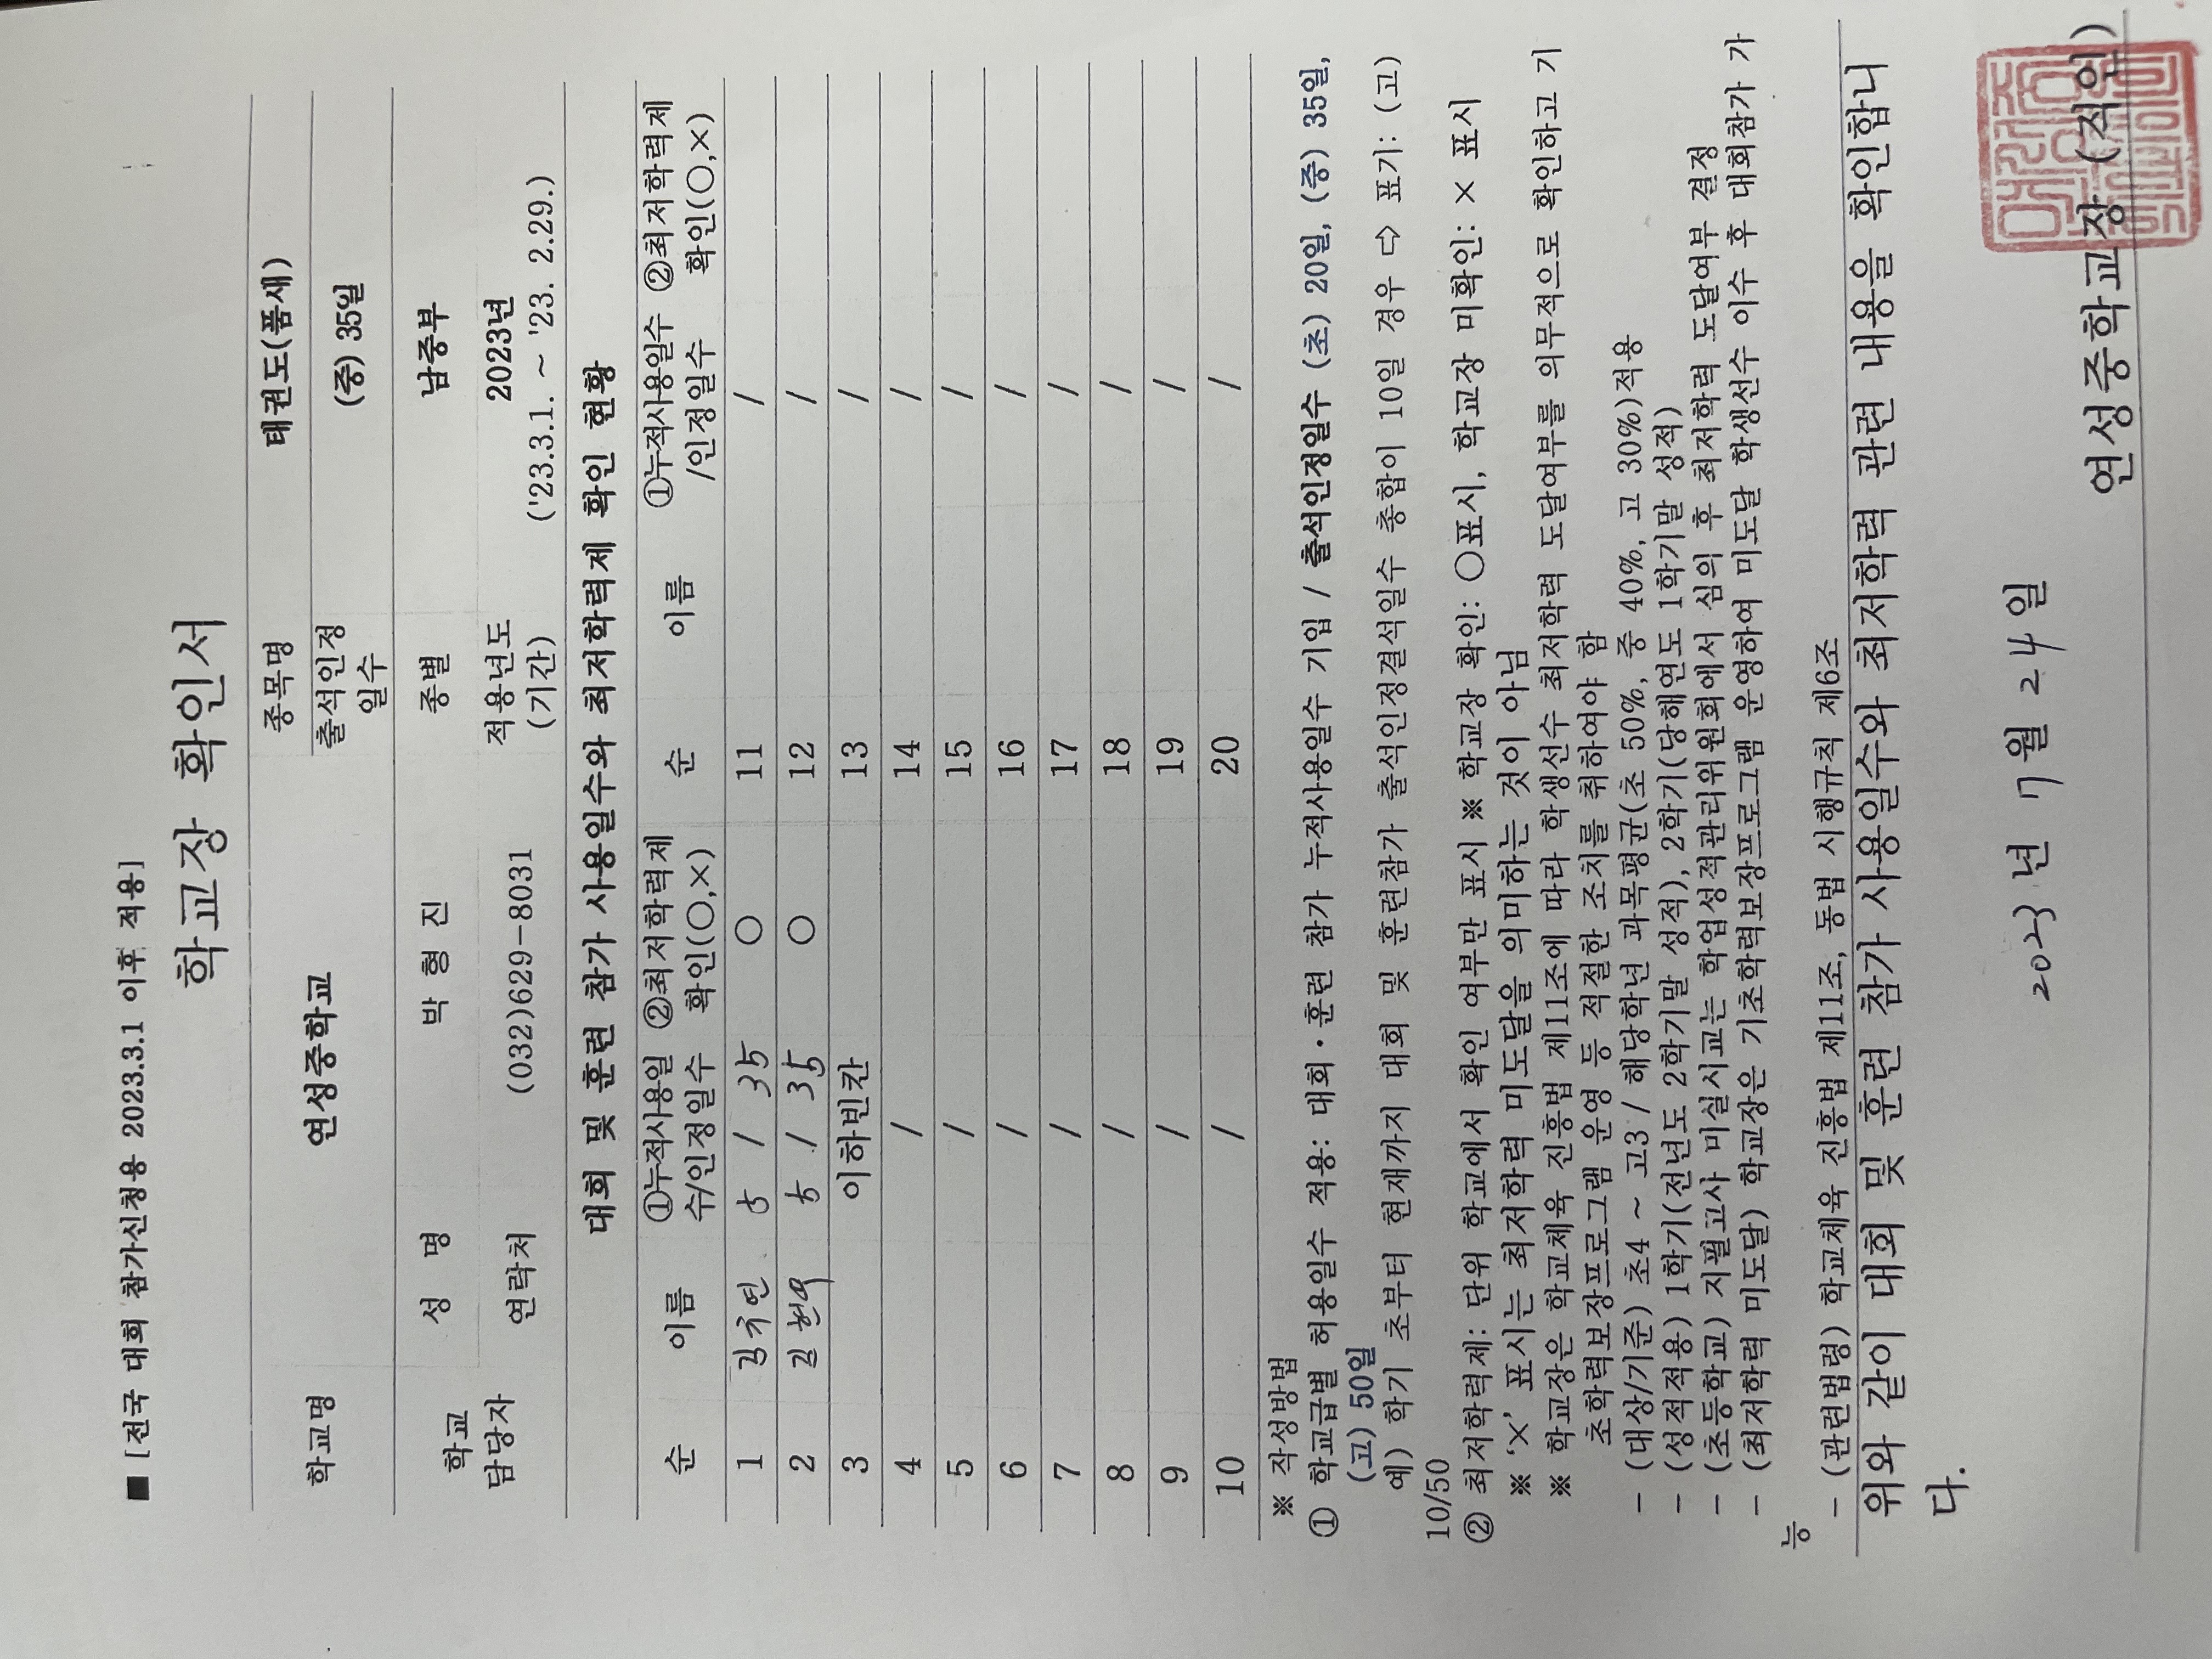 ■ [전국 대회 참가신청용 2023.3.1 이후 적용]
학교장 확인서
학교명 연성중학교 종목명 태권도(품새)
출석인정 일수 (중) 35일
학교 담당자 성 명 박 형 진 종별 남중부
연락처 (032)629-8031 적용년도 (기간) 2023년 ('23.3.1. ~ '23. 2.29.)
대회 및 훈련 참가 사용일수와 최저학력제 확인 현황
순 이름 ①누적사용일수/인정일수 ②최저학력제 확인(○,×) 순 이름 ①누적사용일수/인정일수 ②최저학력제 확인(○,×)
1 5 / 35 ○ 11 /
2 김 5 / 35 ○ 12 /
3 이하빈칸 13 /
4 / 14 /
5 / 15 /
6 / 16 /
7 / 17 /
8 / 18 /
9 / 19 /
10 / 20 /
※ 작성방법
① 학교급별 허용일수 적용: 대회·훈련 참가 누적사용일수 기입 / 출석인정일수 (초) 20일, (중) 35일,
(고) 50일
예) 학기 초부터 현재까지 대회 및 훈련참가 출석인정결석일수 총합이 10일 경우 ⇨ 표기: (고)
10/50
② 최저학력제: 단위 학교에서 확인 여부만 표시 ※ 학교장 확인: ○표시, 학교장 미확인: × 표시
※ '×' 표시는 최저학력 미도달을 의미하는 것이 아님
※ 학교장은 학교체육 진흥법 제11조에 따라 학생선수 최저학력 도달여부를 의무적으로 확인하고 기
초학력보장프로그램 운영 등 적절한 조치를 취하여야 함
- (대상/기준) 초4 ~ 고3 / 해당학년 과목평균(초 50%, 중 40%, 고 30%)적용
- (성적적용) 1학기(전년도 2학기말 성적), 2학기(당해연도 1학기말 성적)
- (초등학교) 지필고사 미실시교는 학업성적관리위원회에서 심의 후 최저학력 도달여부 결정
- (최저학력 미도달) 학교장은 기초학력보장프로그램 운영하여 미도달 학생선수 이수 후 대회참가 가
능
- (관련법령) 학교체육 진흥법 제11조, 동법 시행규칙 제6조
위와 같이 대회 및 훈련 참가 사용일수와 최저학력 관련 내용을 확인합니
다.
2023년 7월 24일
연성중학교장 (직인)